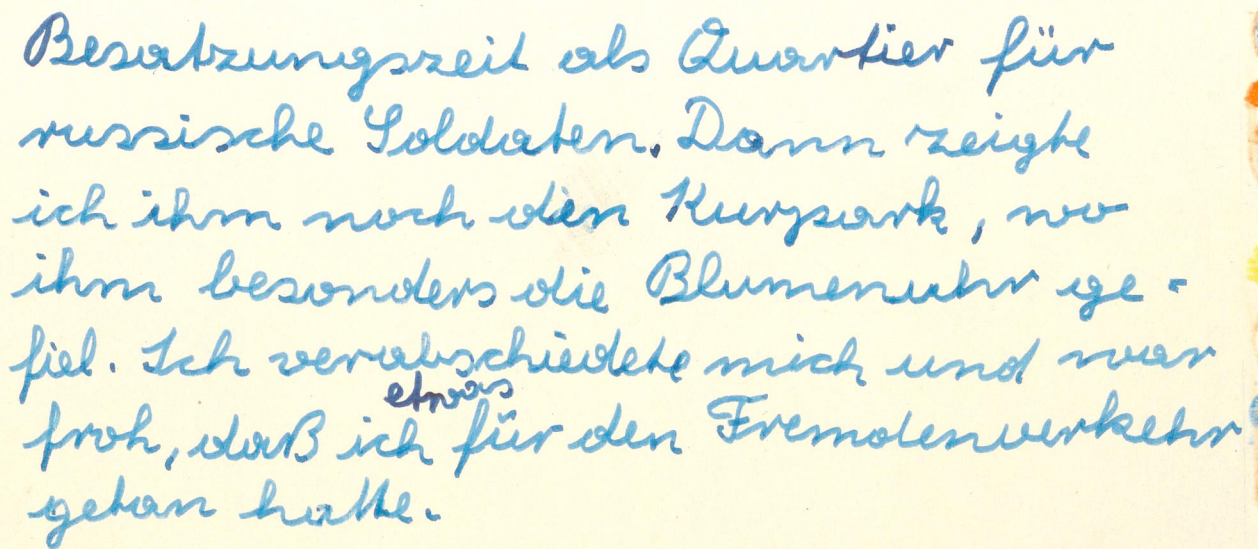 Besatzungszeit als Quartier für
russische Soldaten. Dann zeigte
ich ihm noch den Kurpark, wo
ihm besonders die Blumenuhr ge-
fiel. Ich verabschiedete mich und war
etwas
froh, daß ich für den Fremdenverkehr
getan hatte.